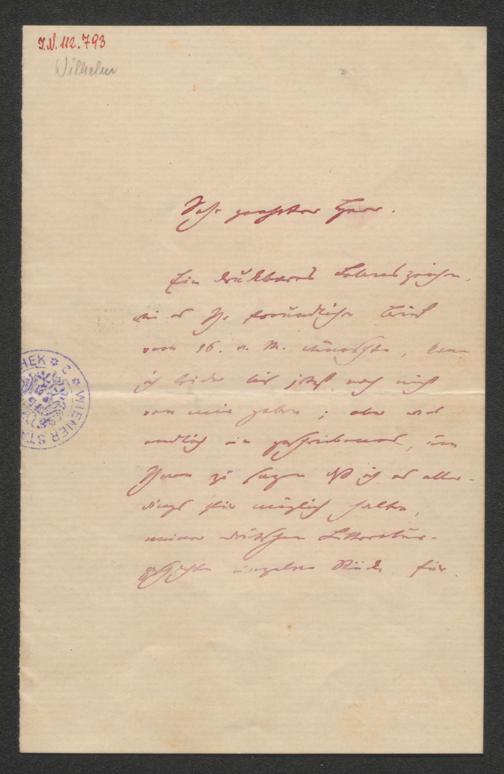 I.N. 112.793
Wilhelm
Sehr geehrter Herr.
Ein druckbares Lebenszeichen,
wie es Ihr freundlicher Brief
vom 16. v. M. wünschte, kann
ich leider bis jetzt noch nicht
von mir geben; aber
endlich ein geschriebenes, um
Ihnen zu sagen daß ich es aller-
dings für möglich halte,
meiner deutschen Litteratur-
geschichte einzelne Stücke für
HEK * 2 * WIENER ST